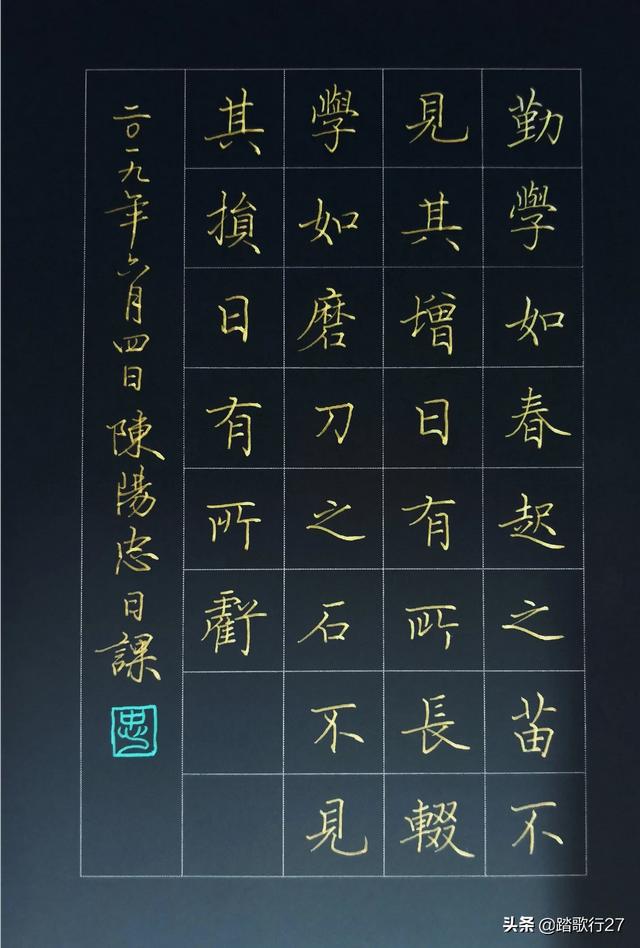 勤學如春起之苗不
見其增日有所長輟
學如磨刀之石不見
其損日有所虧
二〇一九年六月四日陳陽忠日課
忠
头条 @踏歌行27